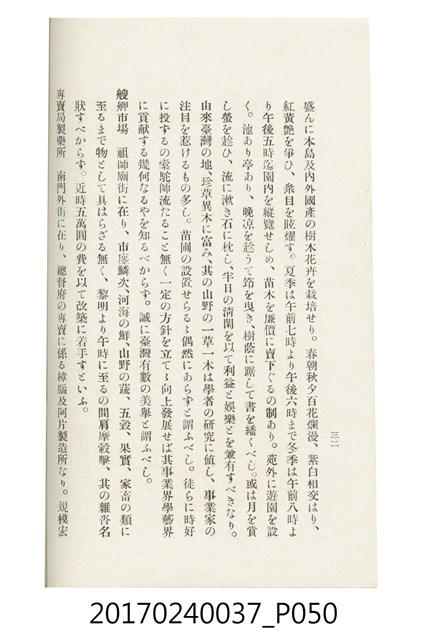 三二
盛んに本島及內外國產の樹木花卉を栽培せり。春朝秋夕百花爛漫、紫白相交はり、
紅黃艷を爭ひ、衆目を眩燿す。夏季は午前七時より午後六時まで冬季は午前八時よ
り午後五時迄園內を縱覽せしめ、苗木を廉價に賣下ぐるの制あり。苑外に遊園を設
く。池あり亭あり、晚凉を趁うて筇を曳き、樹蔭に踞して書を繙くべし。或は月を賞
し螢を趁ひ、流に漱き石に枕し、半日の淸閑を以て利益と娛樂とを兼有すべきなり。
由來臺灣の地、珍草異木に富み、其の山野の一草一木は學者の硏究に値し、事業家の
注目を惹けるもの多し。苗圃の設置せらるゝ偶然にあらずと謂ふべし。徒らに時好
に投するの橐駝師流たること無く一定の方針を立てゝ向上發展せば其事業界學藝界
に貢献する幾何なるやを知るべからず。誠に臺灣有數の美擧と謂ふべし。
艋舺市場 祖師廟街に在り、市廛鱗次、河海の鮮、山野の蔬、五穀、果實、家畜の類に
至るまで物として具はらざる無く、黎明より午時に至るの間肩摩轂擊、其の雜沓名
狀すべからず。近時五萬圓の費を以て改築に着手すといふ。
專賣局製藥所 南門外街に在り、總督府の專賣に係る樟腦及阿片製造所なり。規模宏
20170240037_P050